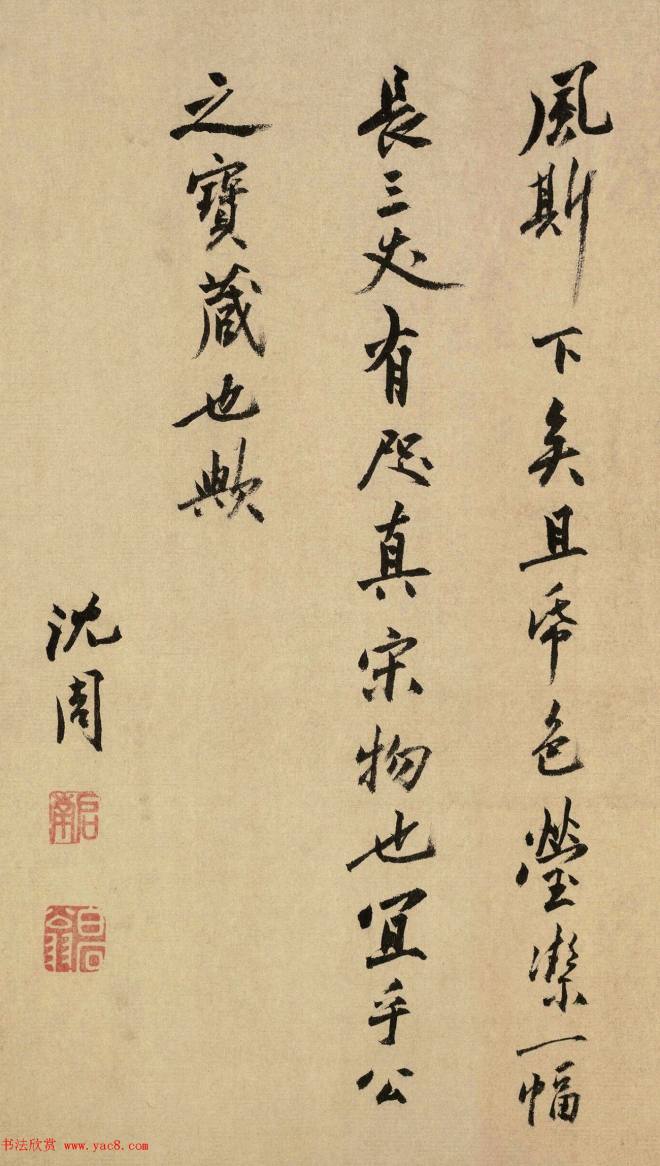 風斯下矣且帋色瑩潔一幅
長三丈有咫真宋物也宜乎公
之寶藏也歟
沈周
啟南
白石翁
书法欣赏 www.yac8.com